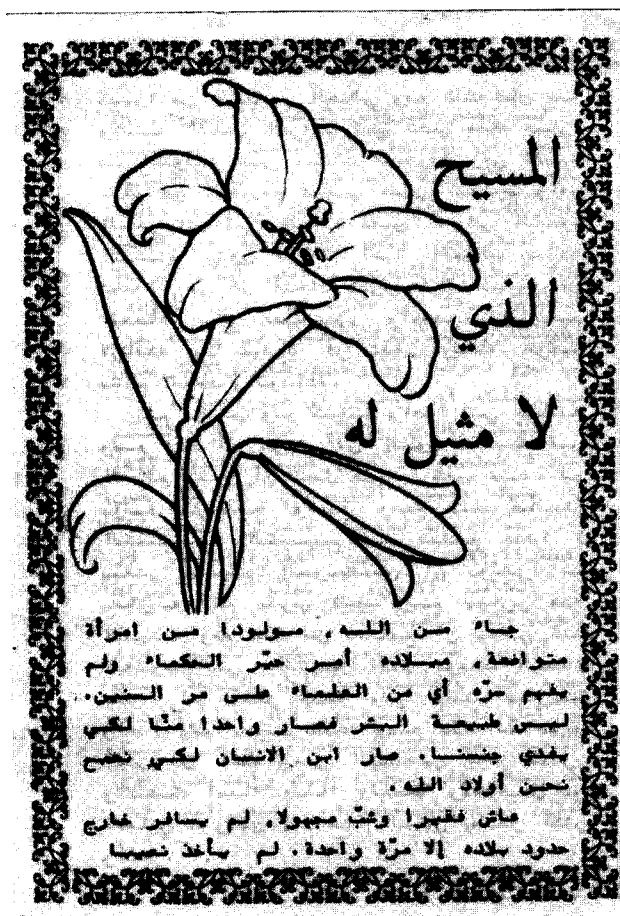 المسيح
الذي
لا مثيل له
جاء من الله، مولودا من امرأة
متواضعة، ميلاده أمر حيّر الحكماء ولم
يفهم سرّه أي من العلماء على مر السنين.
لبس طبيعة البشر فصار واحدا منّا لكي
يفدي جنسنا. صار ابن الانسان لكي نصبح
نحن أولاد الله.
عاش فقيرا وشبّ مجهولا، لم يسافر خارج
حدود بلاده إلا مرّة واحدة. لم يأخذ نصيبا